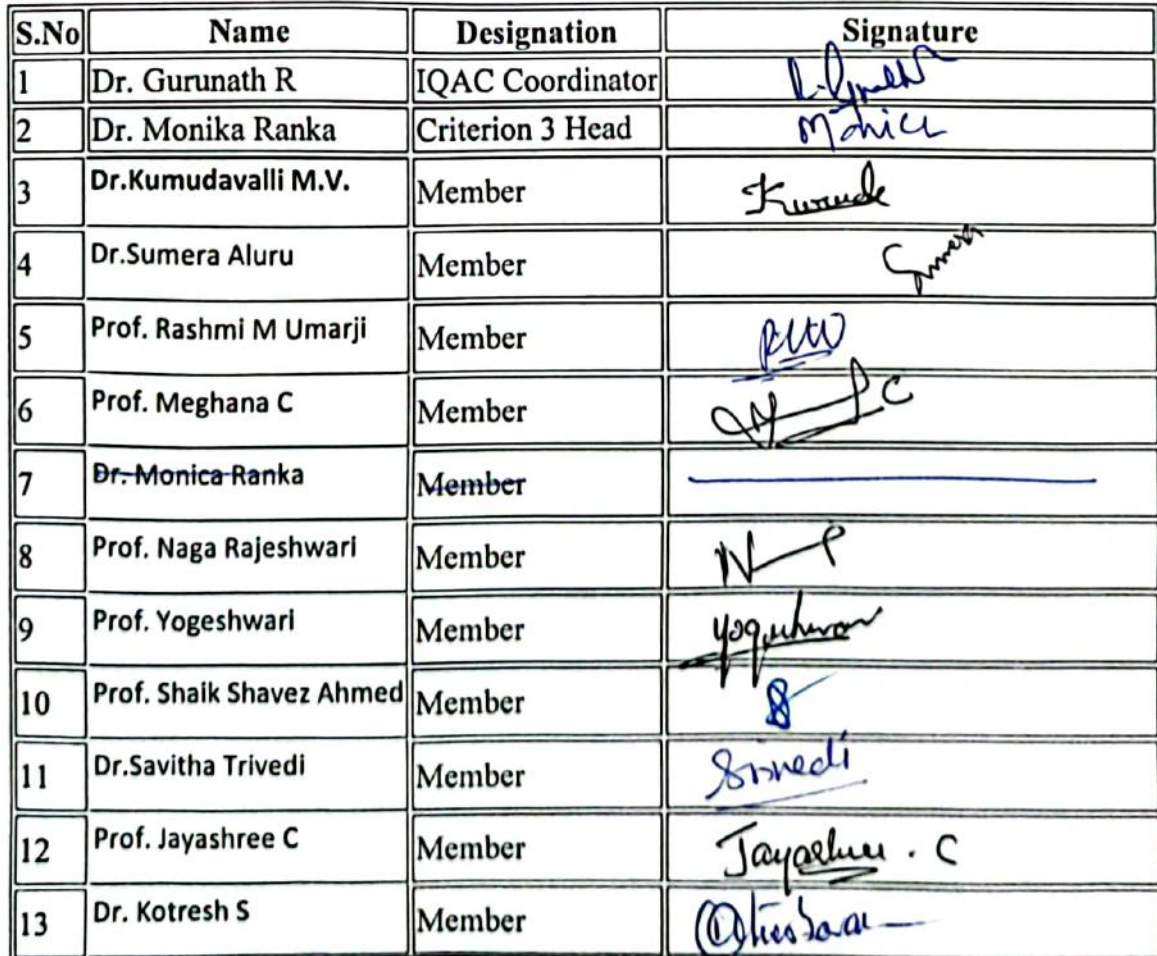 S.No Name Designation Signature
1 Dr. Gurunath R IQAC Coordinator
2 Dr. Monika Ranka Criterion 3 Head Monica
3 Dr.Kumudavalli M.V. Member
4 Dr.Sumera Aluru Member Sumera
5 Prof. Rashmi M Umarji Member
6 Prof. Meghana C Member
7 Dr. Monica Ranka Member
8 Prof. Naga Rajeshwari Member
9 Prof. Yogeshwari Member
10 Prof. Shaik Shavez Ahmed Member
11 Dr.Savitha Trivedi Member
12 Prof. Jayashree C Member Jayashree . C
13 Dr. Kotresh S Member